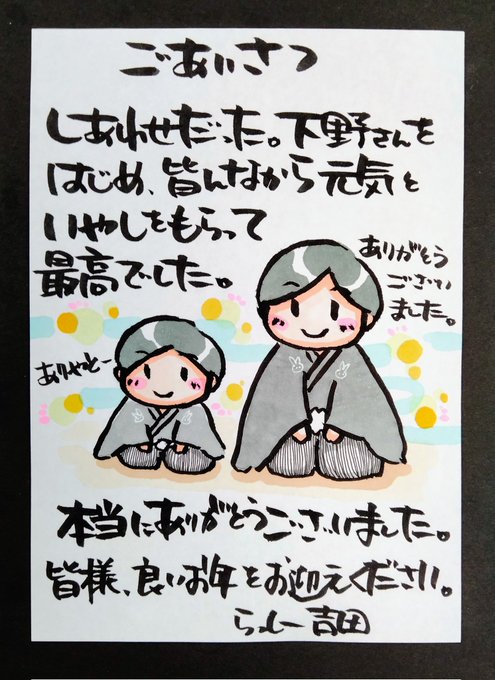 ごあいさつ
しあわせだった。下野さんを
はじめ、皆んなから元気と
いやしをもらって
最高でした。
ありがとう
ござい
ました。
ありやとー
本当にありがとうございました。
皆様、良いお年をお迎えください。
らっしー吉田